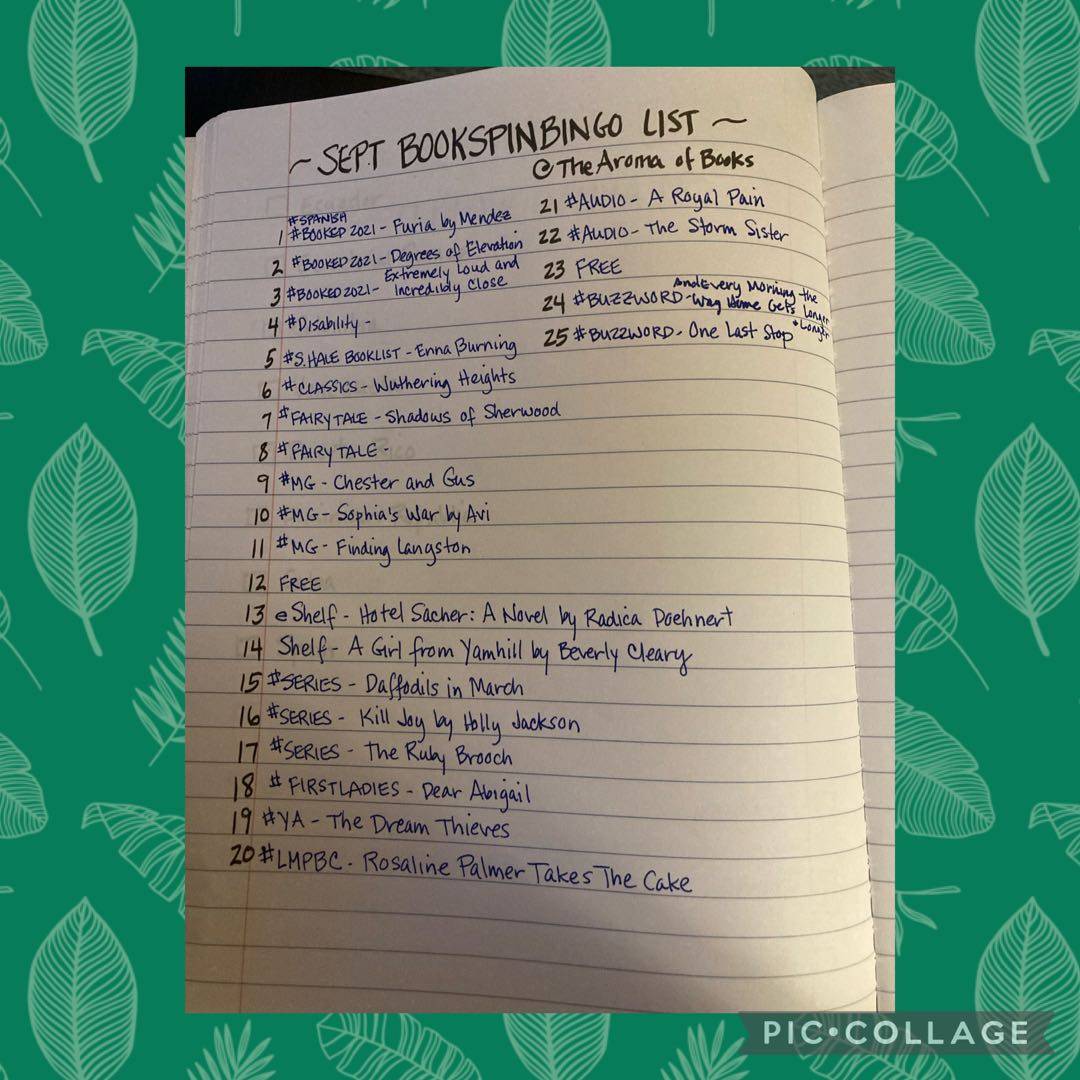 ~ SEPT BOOKSPINBINGO LIST ~
@The Aroma of Books
#SPANISH
1 #BOOKED 2021 - Furia by Mendez
2 #BOOKED 2021 - Degrees of Elevation
Extremely Loud and
3 #BOOKED 2021 - Incredibly Close
4 #Disability -
5 #S.HALE BOOKLIST - Enna Burning
6 #CLASSICS - Wuthering Heights
7 #FAIRYTALE - Shadows of Sherwood
8 #FAIRYTALE -
9 #MG - Chester and Gus
10 #MG - Sophia's War by Avi
11 #MG - Finding Langston
12 FREE
13 eShelf - Hotel Sacher: A Novel by Radica Doehnert
14 Shelf - A Girl from Yamhill by Beverly Cleary
15 #SERIES - Daffodils in March
16 #SERIES - Kill Joy by Holly Jackson
17 #SERIES - The Ruby Brooch
18 #FIRSTLADIES - Dear Abigail
19 #YA - The Dream Thieves
20 #LMPBC - Rosaline Palmer Takes The Cake
21 #AUDIO - A Royal Pain
22 #AUDIO - The Storm Sister
23 FREE
And Every Morning the
24 #BUZZWORD - Way Home Gets Longer
+ Longer
25 #BUZZWORD - One Last Stop
PIC•COLLAGE